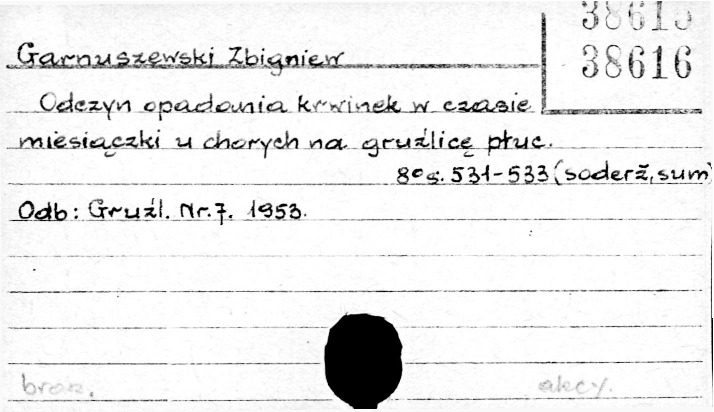 38615
38616
Garnuszewski Zbigniew
Odczyn opadania krwinek w czasie
miesiączki u chorych na gruźlicę płuc.
8° s. 531-533 (soderž, sum)
Odb: Gruźl. Nr. 7. 1953.
brosz. akcy.